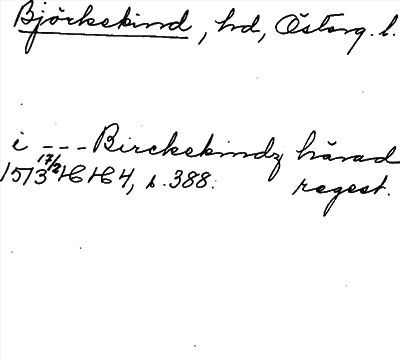 Björkekind, hd, Österg. l.
i --- Birckekindz härad
1513 17/2 HH 4, s. 388. regest.